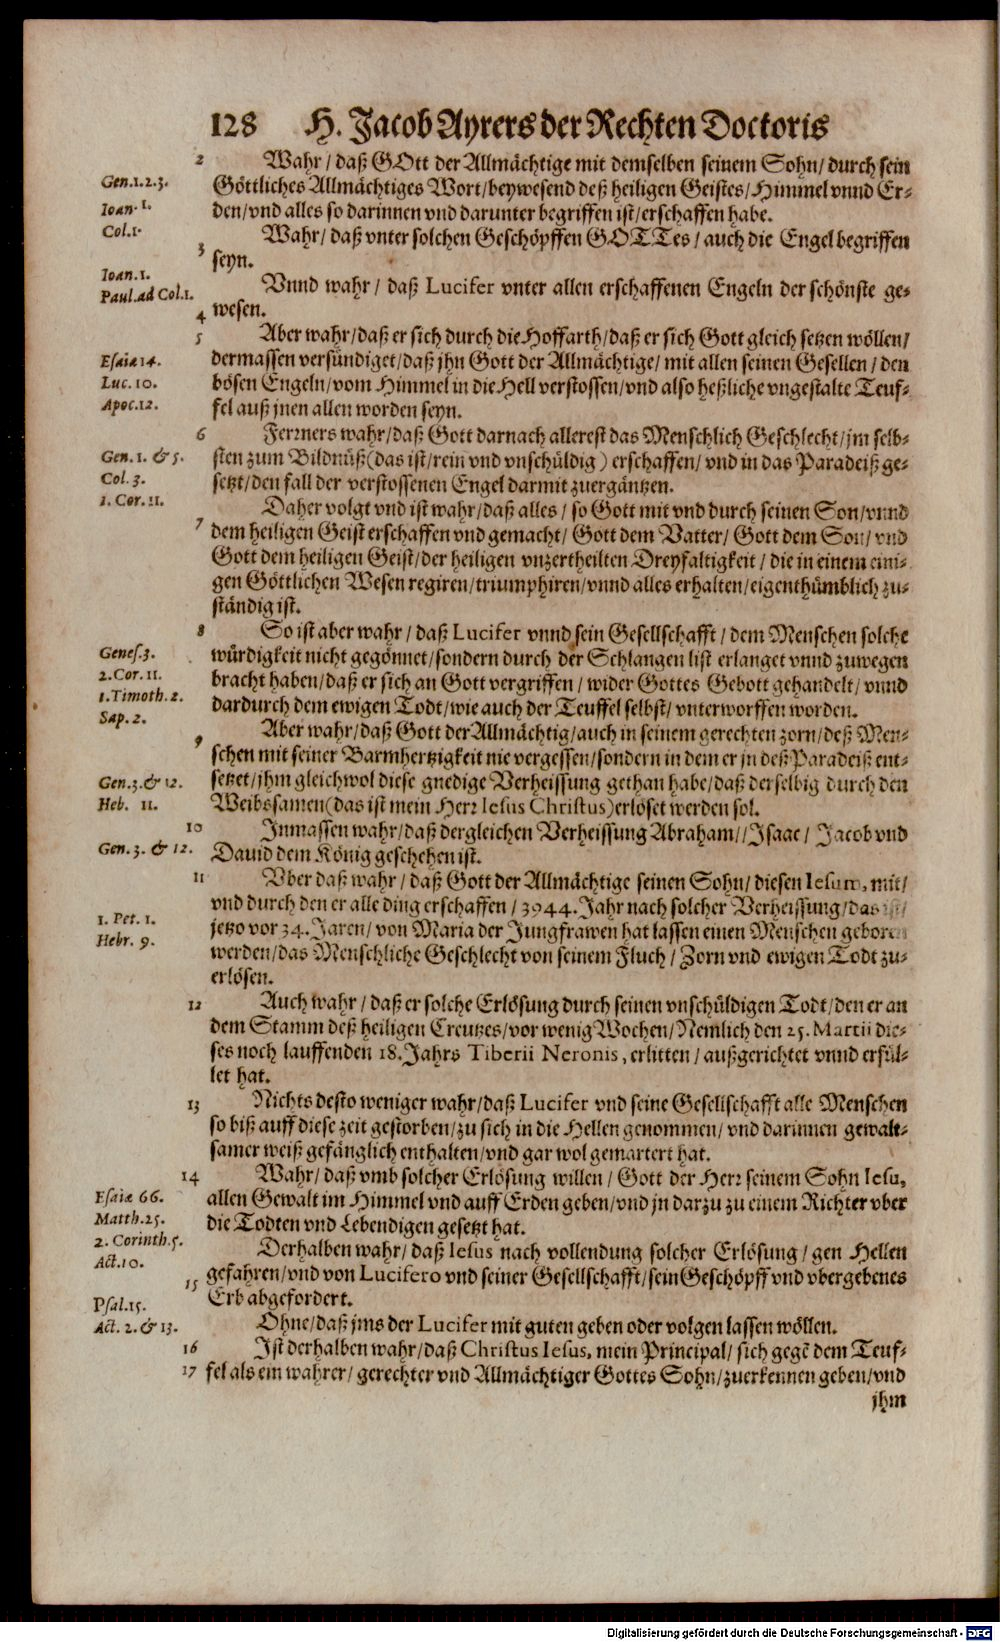 128 H. Jacob Ayrers der Rechten Doctoris
2 Wahr / daß GOtt der Allmächtige mit demselben seinem Sohn / durch sein
Gen.1.2.3. Göttliches Allmächtiges Wort / beywesend deß heiligen Geistes / Himmel vnnd Er-
Ioan. 1. den / vnd alles so darinnen vnd darunter begriffen ist / erschaffen habe.
Col.1. 3 Wahr / daß vnter solchen Geschöpffen GOTTes / auch die Engel begriffen
seyn.
Ioan.1. Vnnd wahr / daß Lucifer vnter allen erschaffenen Engeln der schönste ge-
Paul.ad Col.1. 4 wesen.
5 Aber wahr / daß er sich durch die Hoffarth / daß er sich Gott gleich setzen wöllen /
Esaiæ 14. dermassen versündiget / daß jhn Gott der Allmächtige / mit allen seinen Gesellen / den
Luc. 10. bösen Engeln / vom Himmel in die Hell verstossen / vnd also heßliche vngestalte Teuf-
Apoc.12. fel auß jnen allen worden seyn.
6 Ferrners wahr / daß Gott darnach allererst das Menschlich Geschlecht / jm selb-
Gen. 1. & 5. sten zum Bildnüß (das ist / rein vnd vnschüldig) erschaffen / vnd in das Paradeiß ge-
Col. 3. setzt / den fall der verstossenen Engel darmit zuergäntzen.
1. Cor. 11. Daher volgt vnd ist wahr / daß alles / so Gott mit vnd durch seinen Son / vnnd
7 dem heiligen Geist erschaffen vnd gemacht / Gott dem Vatter / Gott dem Son / vnd
Gott dem heiligen Geist / der heiligen vnzertheilten Dreyfaltigkeit / die in einem eini-
gen Göttlichen Wesen regiren / triumphiren / vnnd alles erhalten / eigenthümblich zu-
ständig ist.
8 So ist aber wahr / daß Lucifer vnnd sein Gesellschafft / dem Menschen solche
Genes.3. würdigkeit nicht gegönnet / sondern durch der Schlangen list erlanget vnnd zuwegen
2. Cor. 11. bracht haben / daß er sich an Gott vergriffen / wider Gottes Gebott gehandelt / vnnd
1.Timoth. 2. dardurch dem ewigen Todt / wie auch der Teuffel selbst / vnterworffen worden.
Sap. 2. Aber wahr / daß Gott der Allmächtig / auch in seinem gerechten zorn / deß Men-
9 schen mit seiner Barmhertzigkeit nie vergessen / sondern in dem er jn deß Paradeiß ent-
Gen.3.& 12. setzet / jhm gleichwol diese gnedige Verheissung gethan habe / daß derselbig durch den
Heb. 11. Weibssamen (das ist mein Herr Iesus Christus) erlöset werden sol.
10 Inmassen wahr / daß dergleichen Verheissung Abraham / / Isaac / Jacob vnd
Gen. 3. & 12. Dauid dem König geschehen ist.
11 Vber daß wahr / daß Gott der Allmächtige seinen Sohn / diesen Iesum, mit /
1. Pet. 1. vnd durch den er alle ding erschaffen / 3944. Jahr nach solcher Verheissung / das ist /
Hebr. 9. jetzo vor 34. Jaren / von Maria der Jungfrawen hat lassen einen Menschen geboren
werden / das Menschliche Geschlecht von seinem Fluch / Zorn vnd ewigen Todt zu-
erlösen.
12 Auch wahr / daß er solche Erlösung durch seinen vnschüldigen Todt / den er an
dem Stamm deß heiligen Creutzes / vor wenig Wochen / Nemlich den 25. Martii die-
ses noch lauffenden 18. Jahrs Tiberii Neronis, erlitten / außgerichtet vnnd erfül-
let hat.
13 Nichts desto weniger wahr / daß Lucifer vnd seine Gesellschafft alle Menschen
so biß auff diese zeit gestorben / zu sich in die Hellen genommen / vnd darinnen gewalt-
samer weiß gefänglich enthalten / vnd gar wol gemartert hat.
14 Wahr / daß vmb solcher Erlösung willen / Gott der Herr seinem Sohn Iesu,
Esaiæ 66. allen Gewalt im Himmel vnd auff Erden geben / vnd jn darzu zu einem Richter vber
Matth.25. die Todten vnd Lebendigen gesetzt hat.
2. Corinth.5. Derhalben wahr / daß Iesus nach vollendung solcher Erlösung / gen Hellen
Act.10. 15 gefahren / vnd von Lucifero vnd seiner Gesellschafft / sein Geschöpff vnd vbergebenes
Psal.15. Erb abgefordert.
Act. 2. & 13. Ohne / daß jms der Lucifer mit guten geben oder volgen lassen wöllen.
16 Ist derhalben wahr / daß Christus Iesus, mein Principal / sich gegē dem Teuf-
17 fel als ein wahrer / gerechter vnd Allmächtiger Gottes Sohn / zuerkennen geben / vnd
jhm
Digitalisierung gefördert durch die Deutsche Forschungsgemeinschaft - DFG